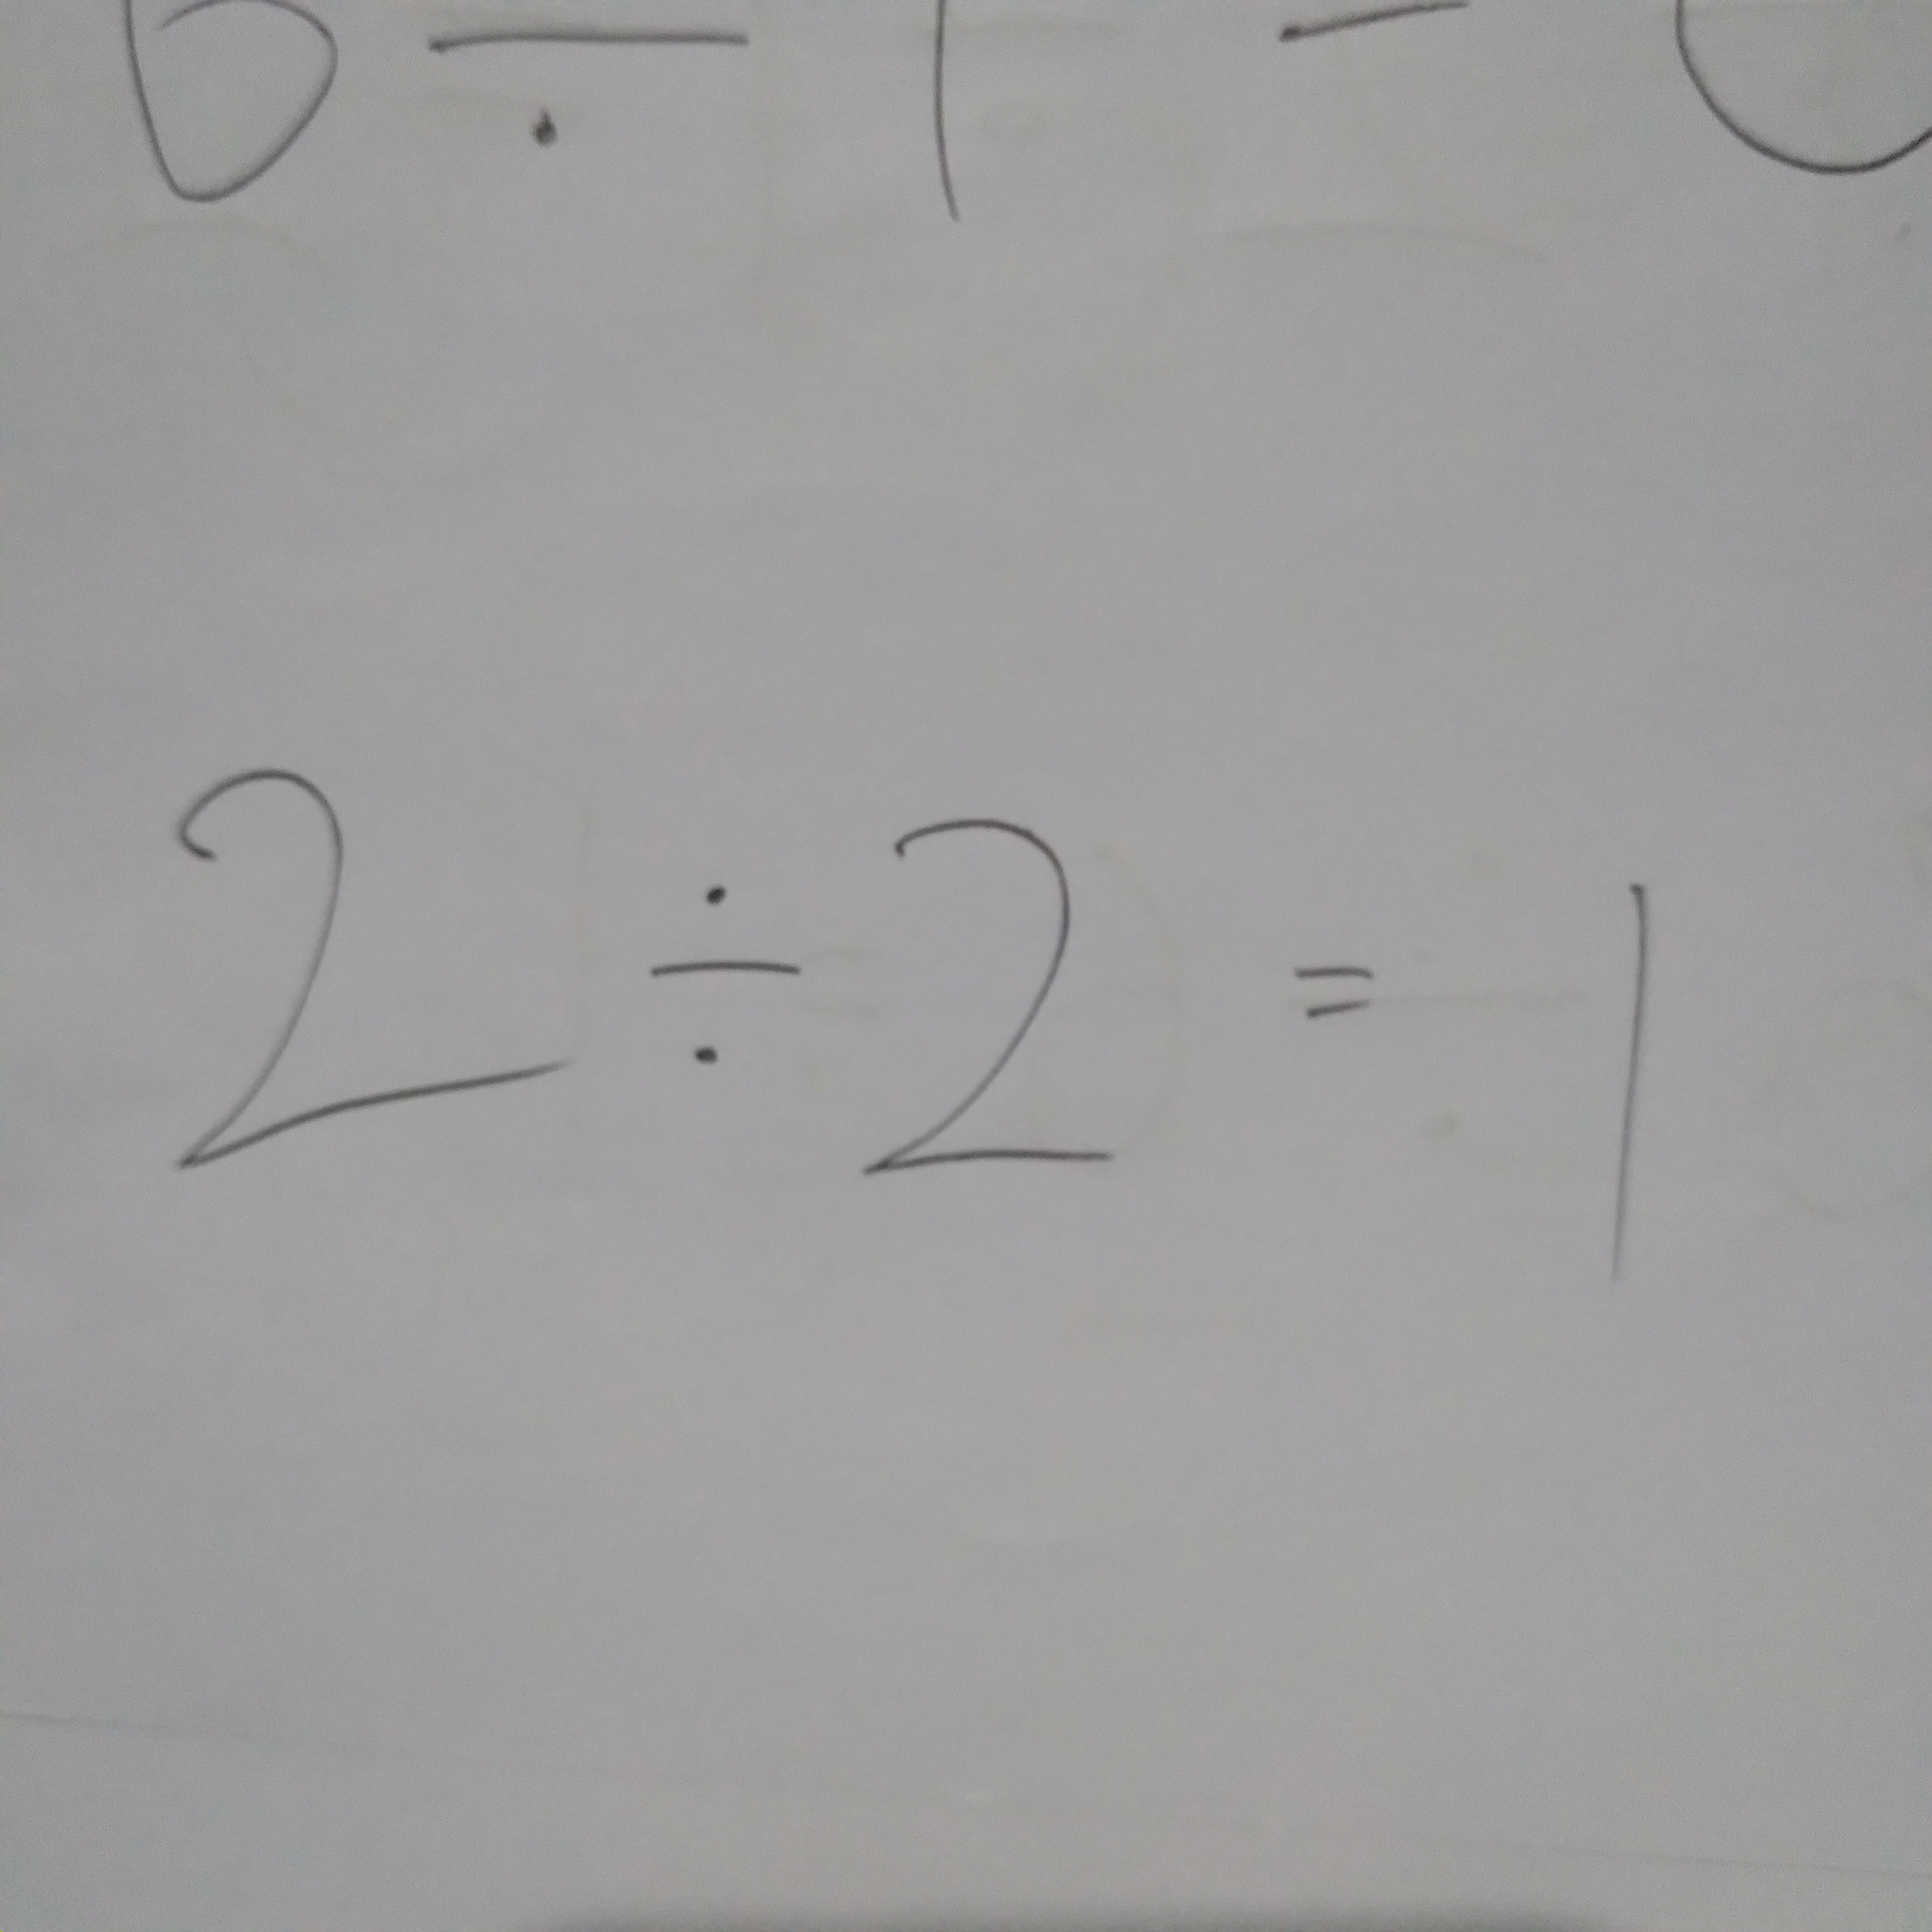 6 ÷ 1 =
2 ÷ 2 = 1